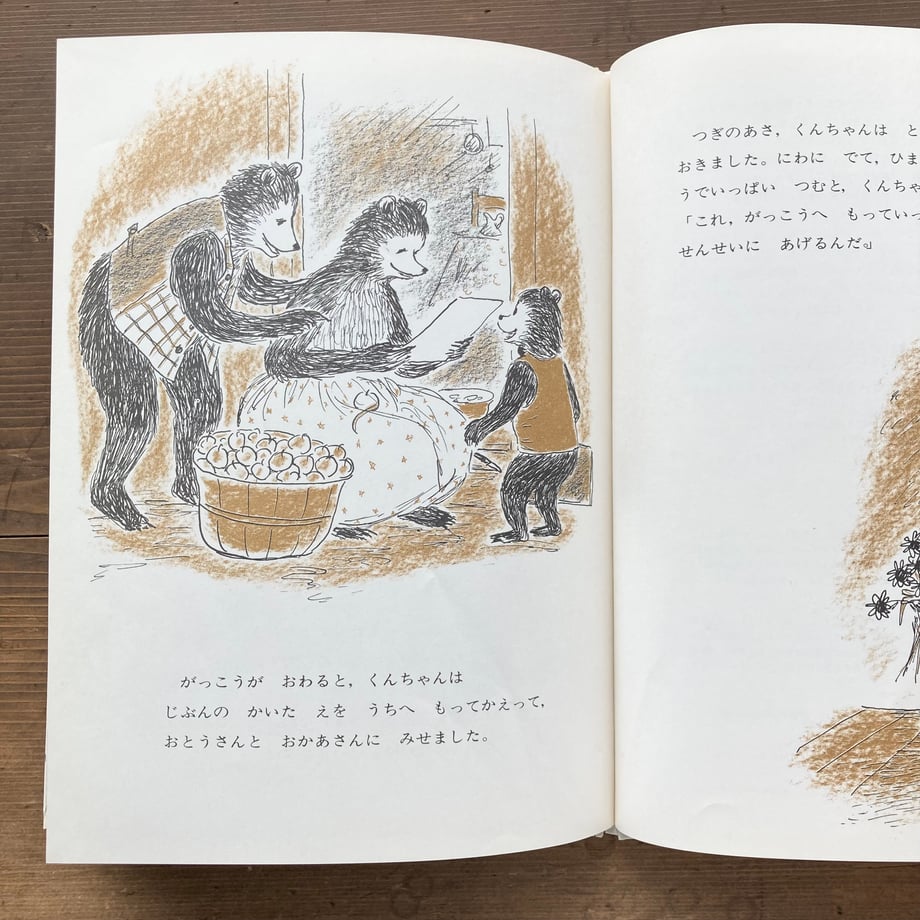 がっこうが　おわると，くんちゃんは
じぶんの　かいた　えを　うちへ　もってかえって，
おとうさんと　おかあさんに　みせました。
つぎのあさ，くんちゃんは　と
おきました。にわに　でて，ひま
うでいっぱい　つむと，くんちゃ
「これ，がっこうへ　もっていっ
せんせいに　あげるんだ。」